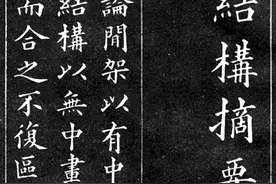 結構摘要
論間架以有中
結構以無中畫
而合之不復區